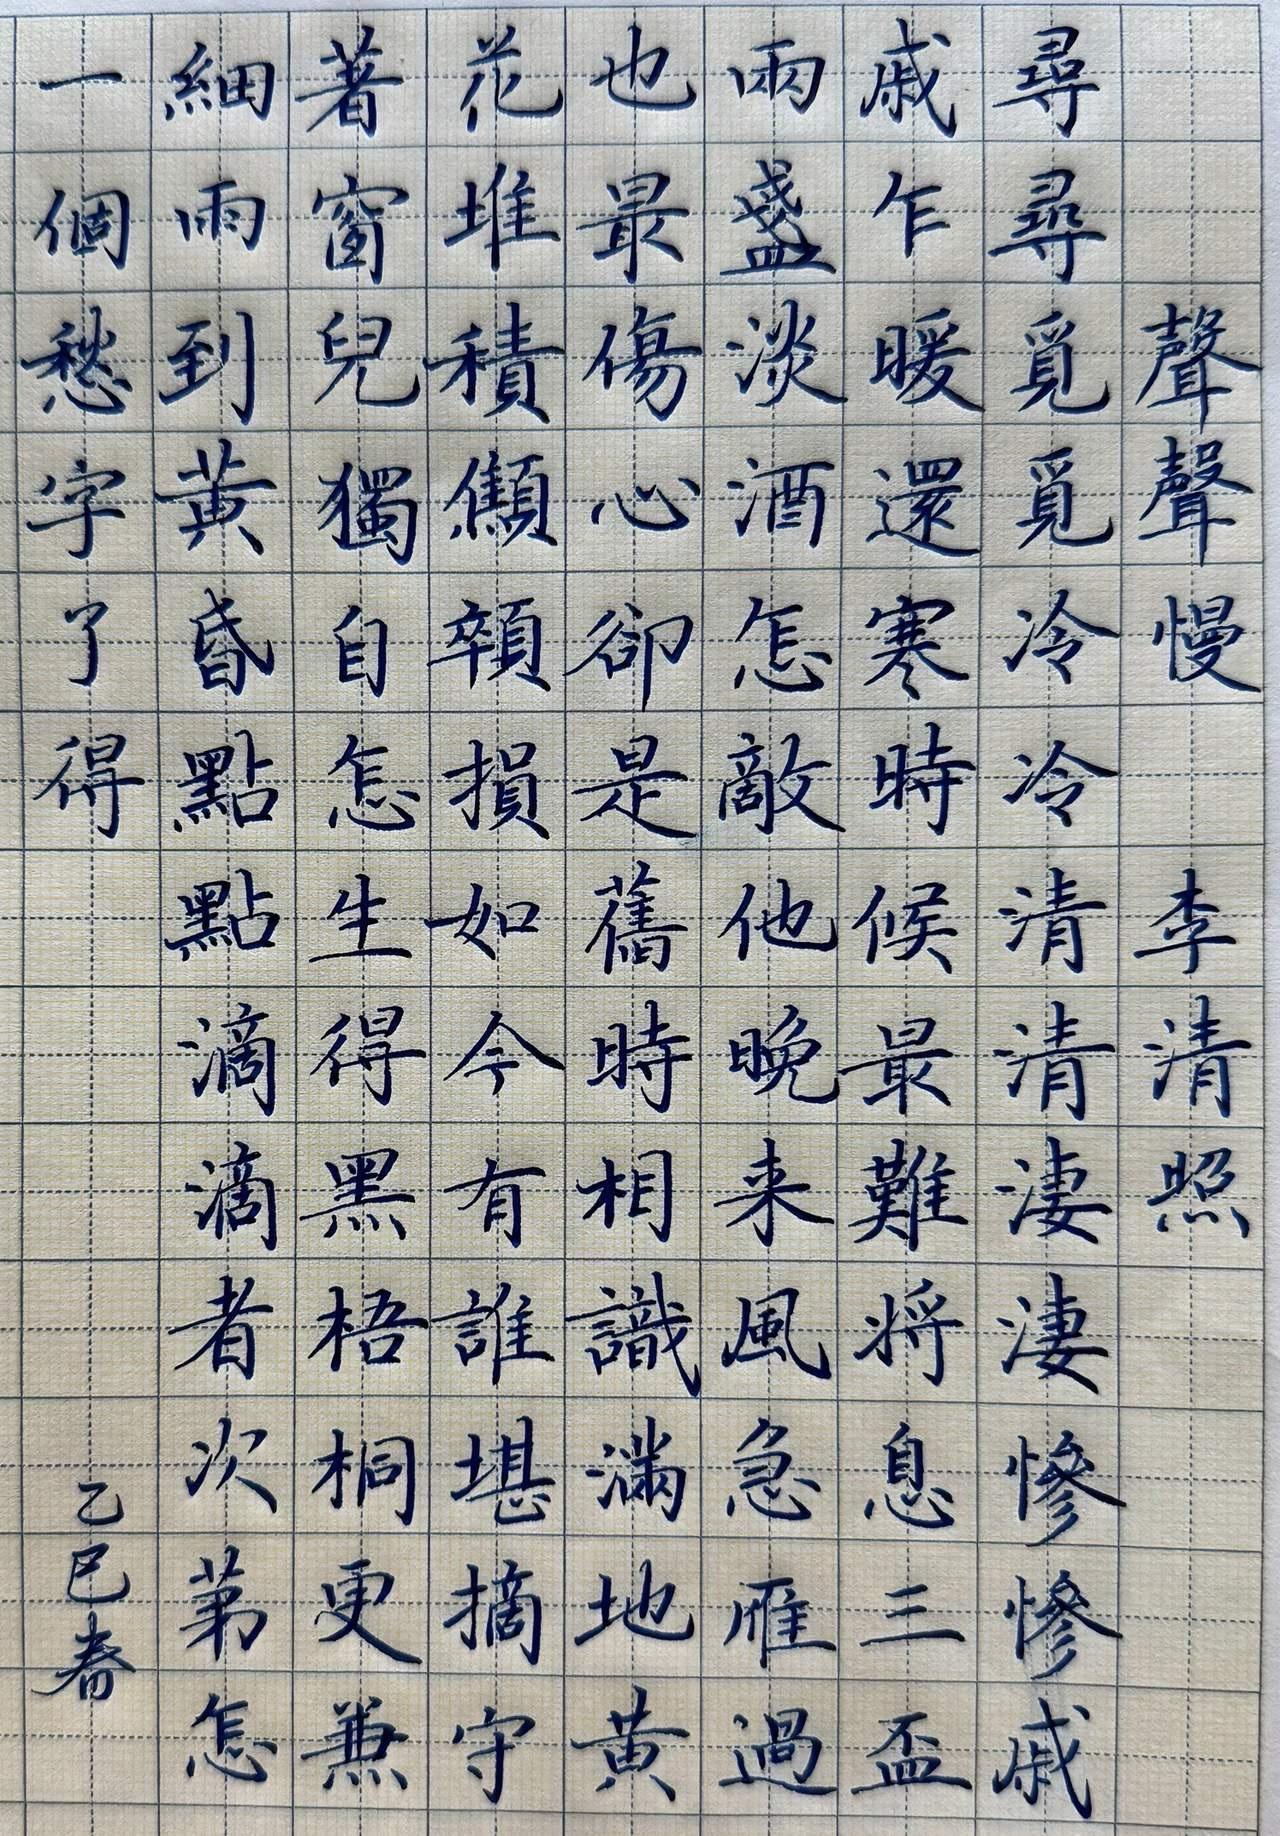 聲聲慢 李清照
尋尋覓覓冷冷清清淒淒慘慘戚
戚乍暖還寒時候最難將息三盃
兩盞淡酒怎敵他晚来風急雁過
也最傷心卻是舊時相識滿地黄
花堆積顦顇損如今有誰堪摘守
著窗兒獨自怎生得黑梧桐更兼
細雨到黃昏點點滴滴者次第怎
一個愁字了得
乙巳春